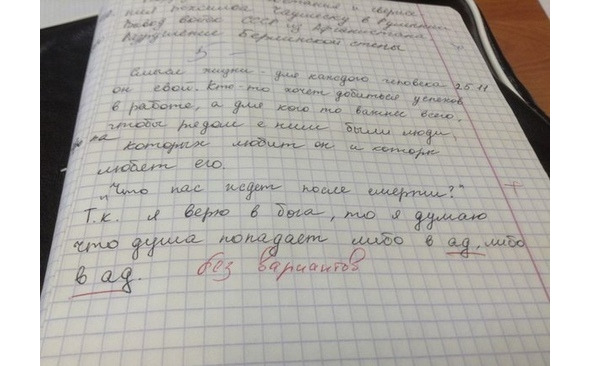 режима Чаушеску в Румынии
Вывод войск СССР из Афганистана
Разрушение Берлинской стены
5 -
Смысл жизни - для каждого человека 25.11
он свой. Кто-то хочет добиться успехов
в работе, а для кого то важнее всего,
чтобы рядом с ним были люди,
которых любит он и которы
любят его.
"Что нас ждет после смерти?"
Т.к. я верю в бога, то я думаю
что душа попадает либо в ад, либо
в ад. без вариантов